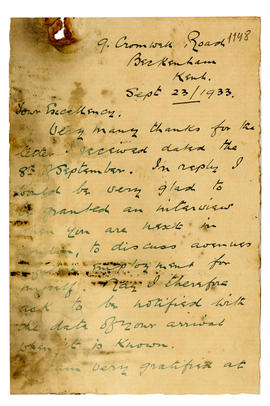 9. Cromwell Road 1148
Beckenham
Kent.
Sept 23/1933.
Your Excellency.
Very many thanks for the
letter I received dated the
8th of September. In reply I
would be very glad to
be granted an interview
when you are next in
to discuss avenues
employment for
myself. May I therefore
ask to be notified with
the date of your arrival
when it is known.
I am very gratified at